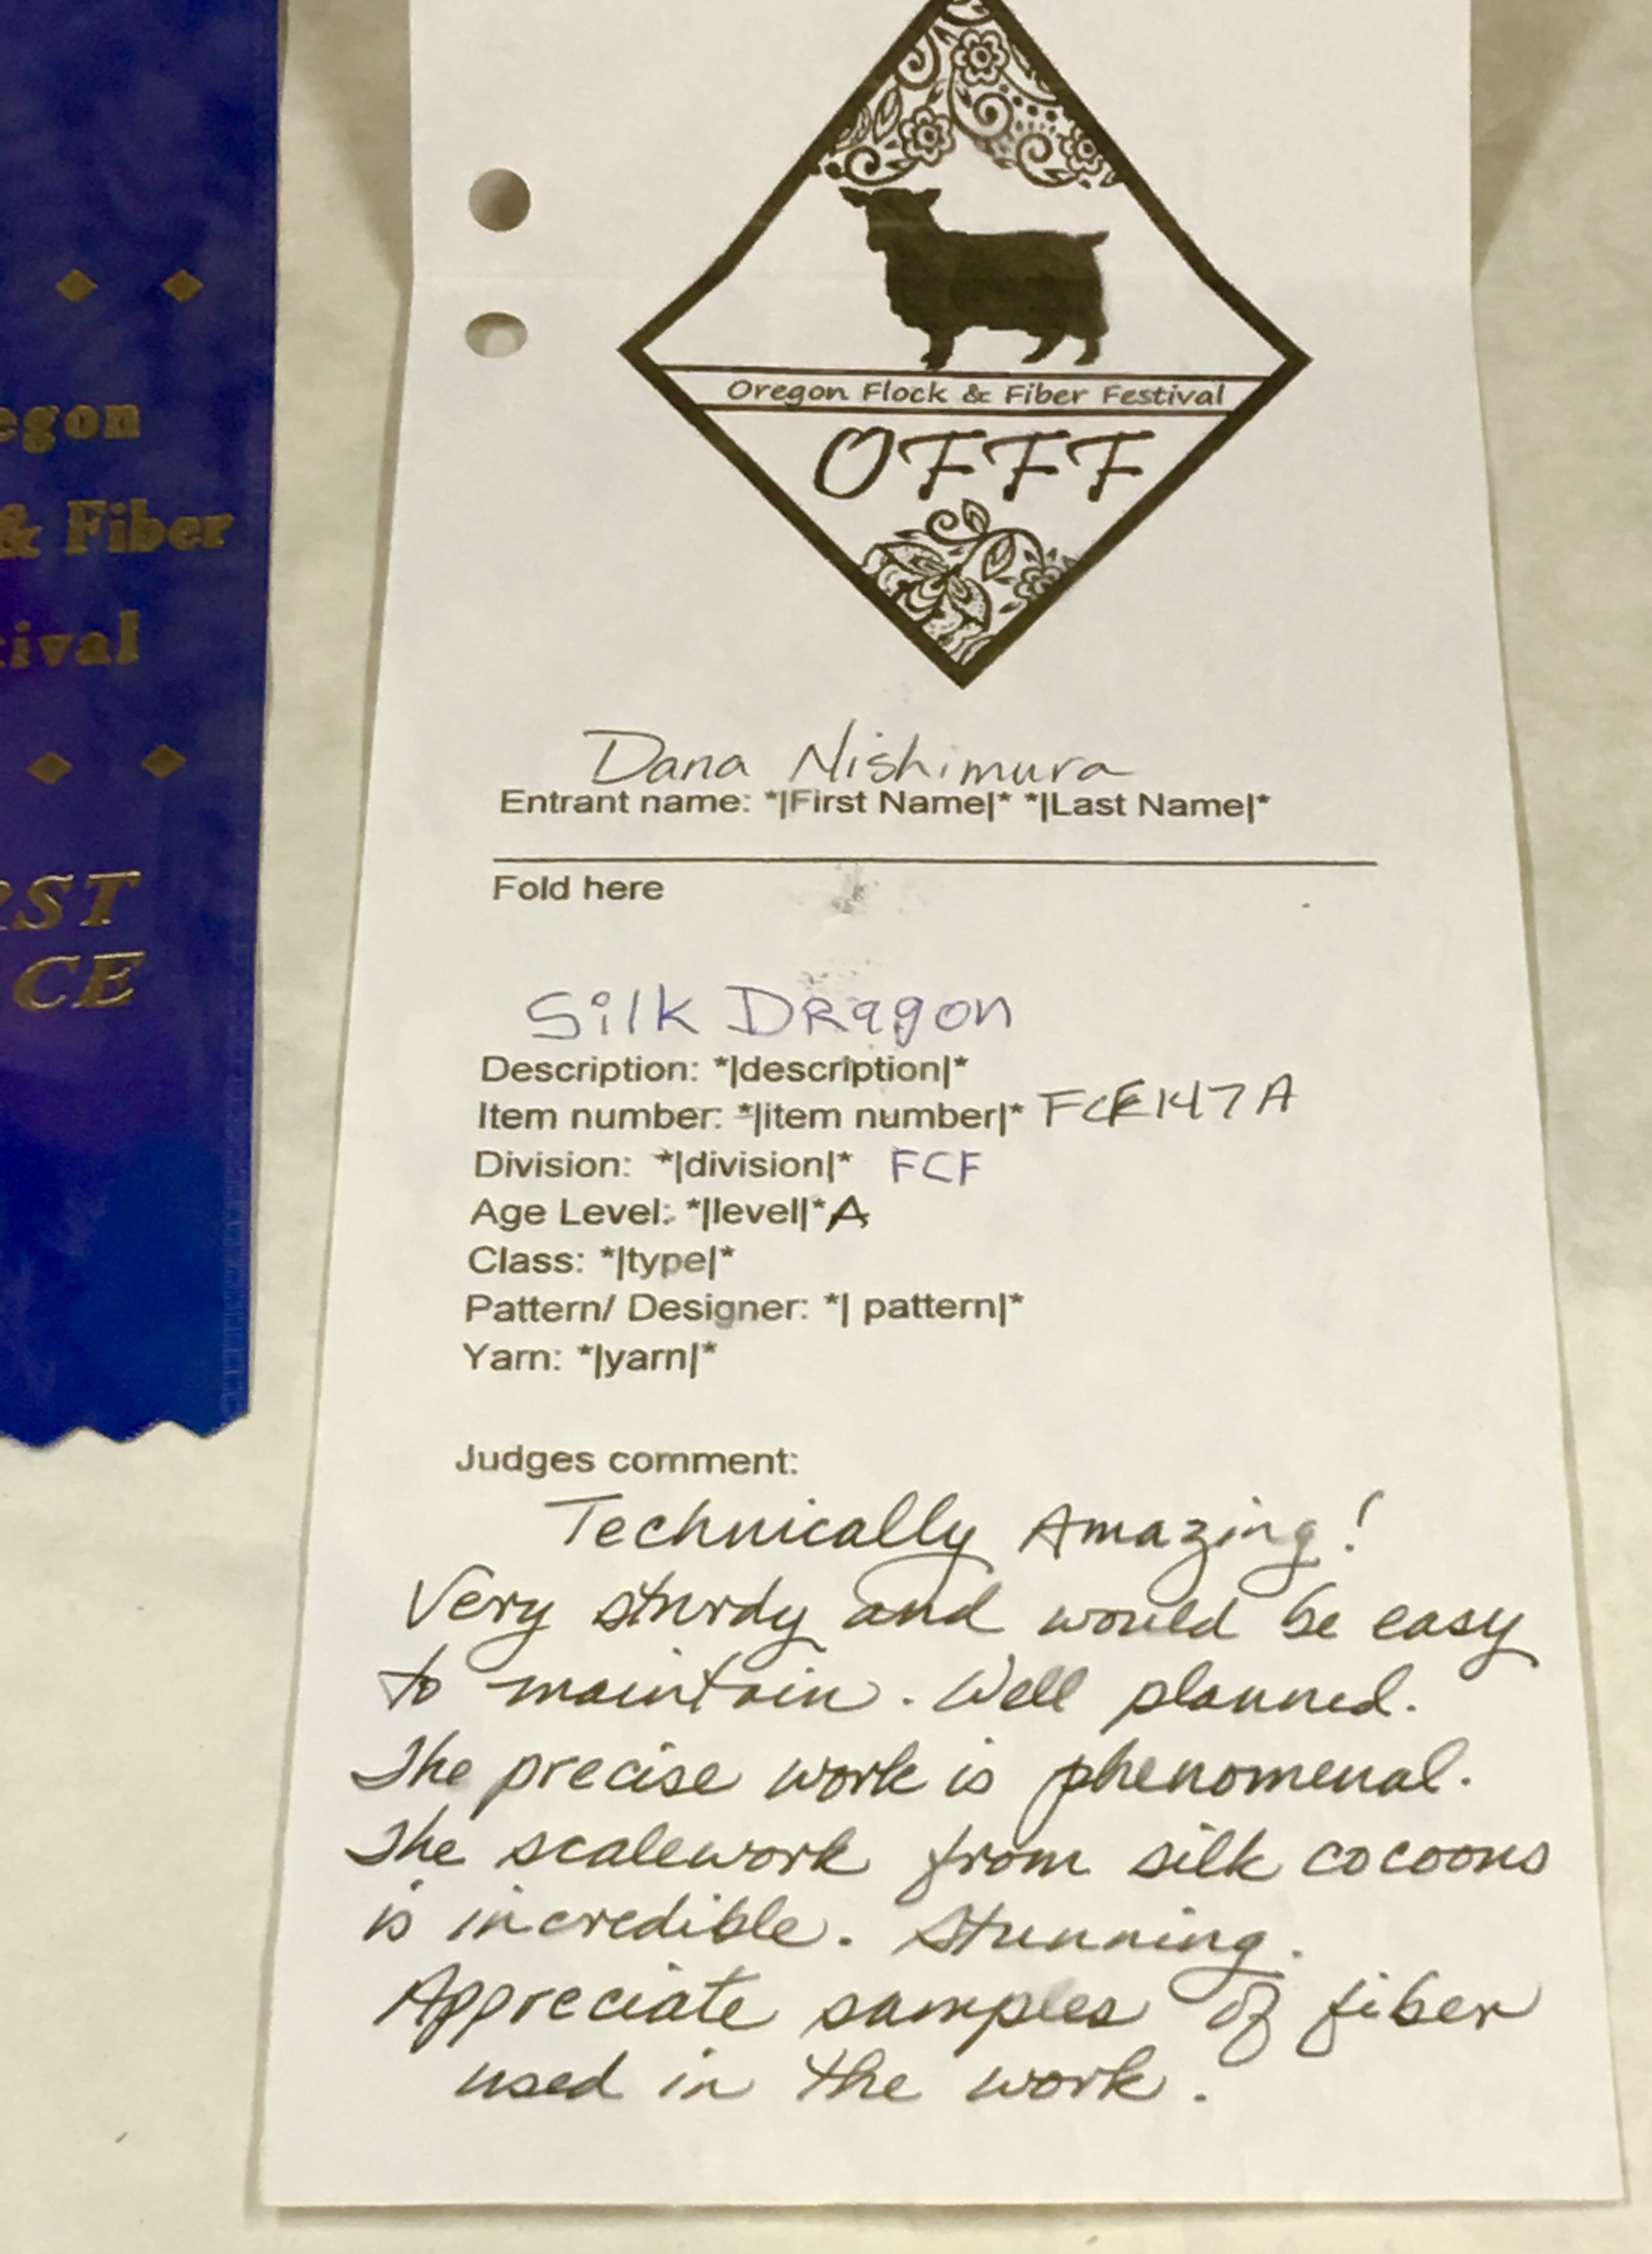 egon
& Fiber
tival
RST
CE
Oregon Flock & Fiber Festival
OFFF
Dana Nishimura
Entrant name: *|First Name|* *|Last Name|*
Fold here
Silk Dragon
Description: *|description|*
Item number: *|item number|*
Division: *|division|* FCF
Age Level: *|level|* A
Class: *|type|*
Pattern/ Designer: *| pattern|*
Yarn: *|yarn|*
Judges comment:
Technically Amazing!
Very sturdy and would be easy
to maintain. Well planned.
The precise work is phenomenal.
The scalework from silk cocoons
is incredible. Stunning.
Appreciate samples of fiber
used in the work.